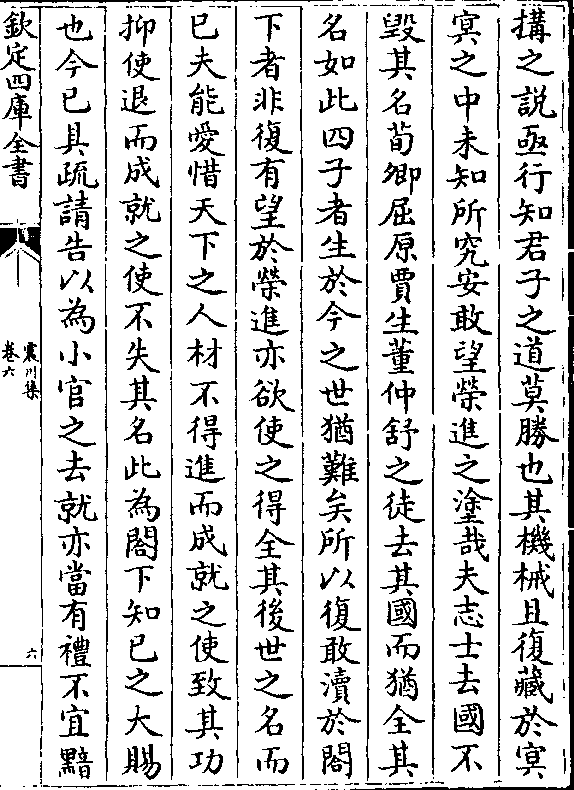 搆之説亟行知君子之道莫勝也其機械且復藏於㝠
㝠之中未知所究安敢望榮進之塗哉夫志士去國不
毀其名荀卿屈原賈生董仲舒之徒去其國而猶全其
名如此四子者生於今之世猶難矣所以復敢瀆於閤
下者非復有望於榮進亦欲使之得全其後世之名而
已夫能愛惜天下之人材不得進而成就之使致其功
抑使退而成就之使不失其名此為閤下知已之大賜
也今已具疏請告以為小官之去就亦當有禮不宜黯
欽定四庫全書
震川集
卷六
六